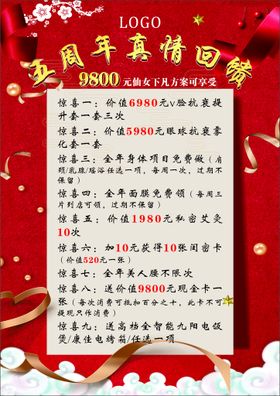 LOGO
五周年真情回馈
9800 元仙女下凡方案可享受
惊喜一：价值6980元v脸抗衰提
升套一套三次
惊喜二：价值5980元眼球抗衰雾
化套一套
惊喜三：全年身体项目免费做（肩
颈/乳腺/瑶浴任选一项，每周一次，过期不
保留）
惊喜四：全年面膜免费领（每周三
片到店可领，过期不保留）
惊喜五：价值1980元私密艾灸
10次
惊喜六：加10元获得10张闺密卡
（价值520元一张）
惊喜七：全年美人腰不限次
惊喜八：送价值9800元现金卡一
张（每次消费可抵扣百分之十，此卡不可
提现只作消费）
惊喜九：送高档全智能九阳电饭
煲/康佳电烤箱/任选一项